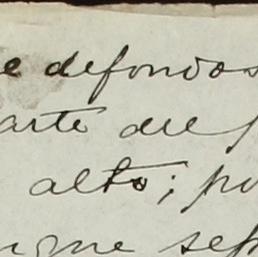 e defondos
arte del
alto; pu
que